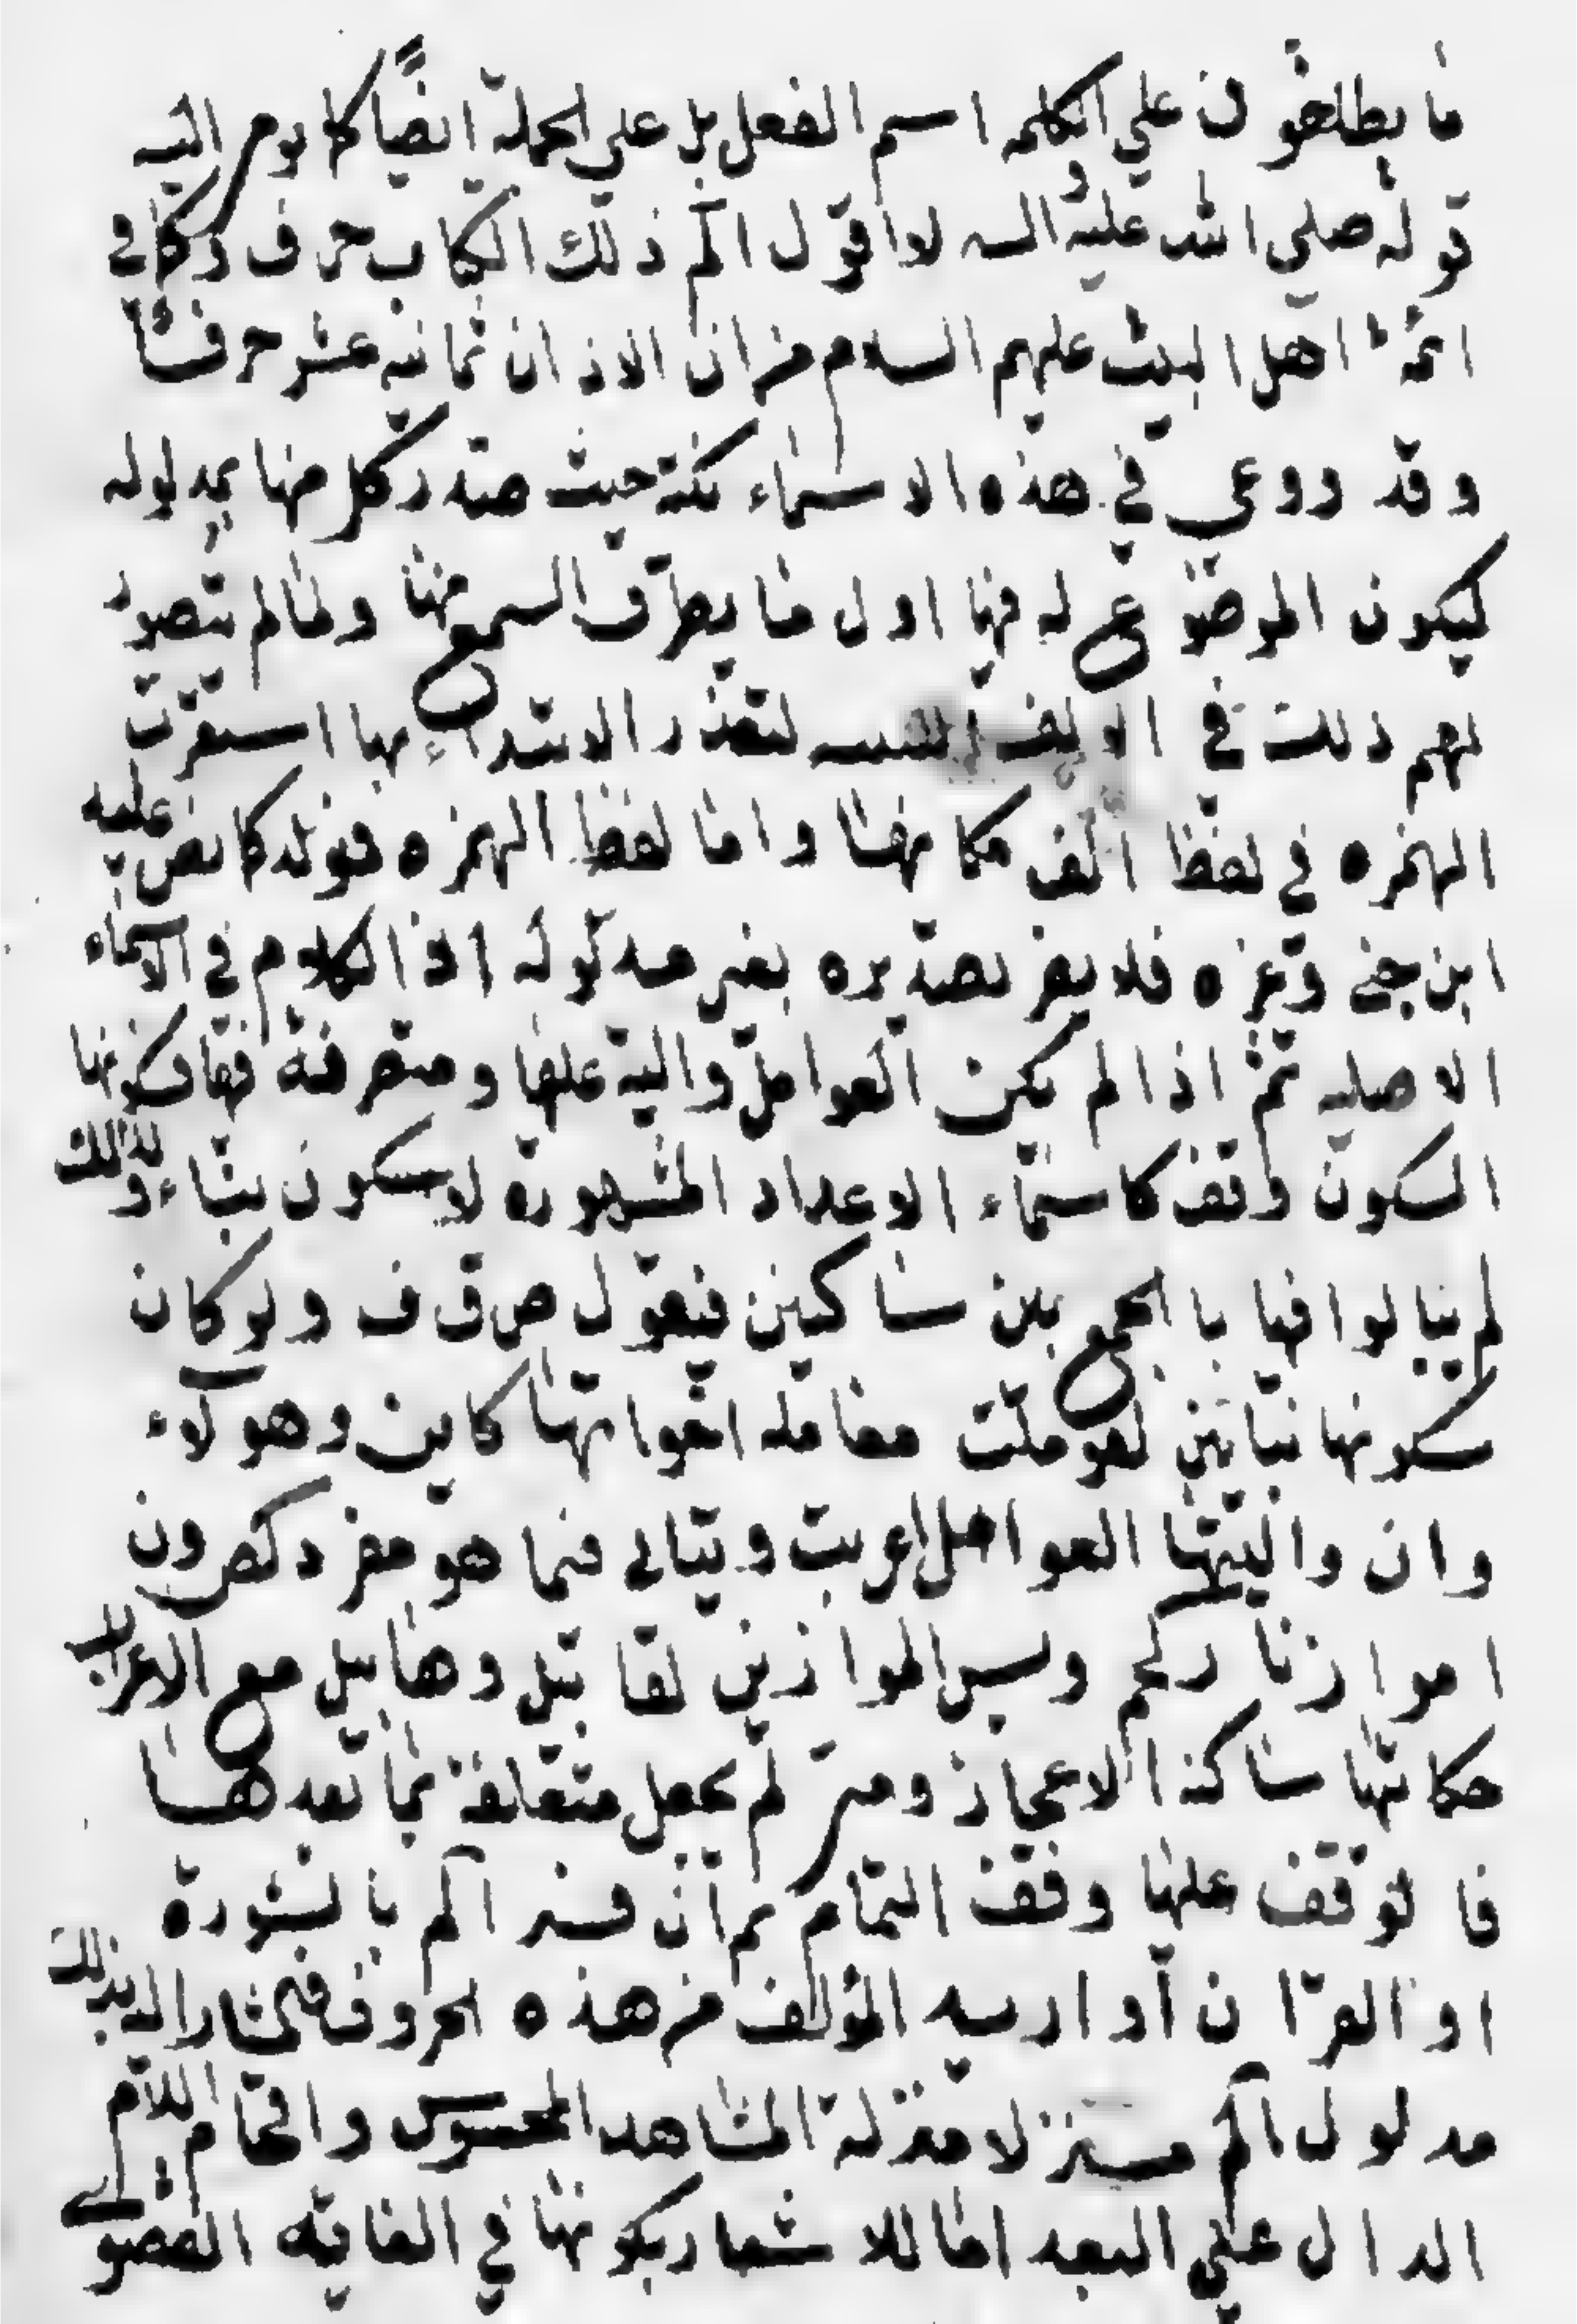 ما يطلقون علي الكلمه اسم الفعل بل علي الجملة ايضًا كما يومي اليه
قوله صلي الله عليه واله لا اقول الم ذلك الكتاب حرف وكما في
ائمة اهل البيت عليهم السلام من ان الاذان ثمانيه عشر حرفًا
وقد روعي في هذه الاسماء نكتة حيث صدر كل منها بمدلوله
ليكون الموضوع له فيها اول ما يطرق السمع منها ولما لم يتصور
لهم ذلك في الالف اللينيه لتعذر الابتداء بها استقرت
الهمزه في لفظ الف مكانها واما لفظ الهمزه فمولد كما نص عليه
ابن جني وغيره فلا يضر تصديره بغير مدلوله اذ الكلام في الاسماء
الاصليه ثم اذا لم يكن العوامل والية عليها ومتصرفة فيها فسكونها
السكون وقف كاسماء الاعداد المشهوره لا سكون بناء ولذلك
لم يبالوا فيها بالجمع بين ساكنين فيقول ص ق ف ولو كان
سكونها بنائيين لعوملت معامله اخواتها كاين وهولآء
وان واليتها العوامل اعربت ويتاتي فيما هو مفرد كص و ن
او موازنا كحم ويس الموازنين لقابيل وهابيل مع الاعراب
حكايتها ساكنة الاعجاز ومتي لم يجعل متعلقة بما بعدها
فالوقف عليها وقف التمام ثم ان فسر الم بالسورة
او القران او اريد به المؤلف من هذه الحروف فالمشار اليه بذلك
مدلول الم منزلا منزلة المشاهد المحسوس واقحام اللام
الدال علي البعد اما للاشعار بكونها في الغايه القصوي